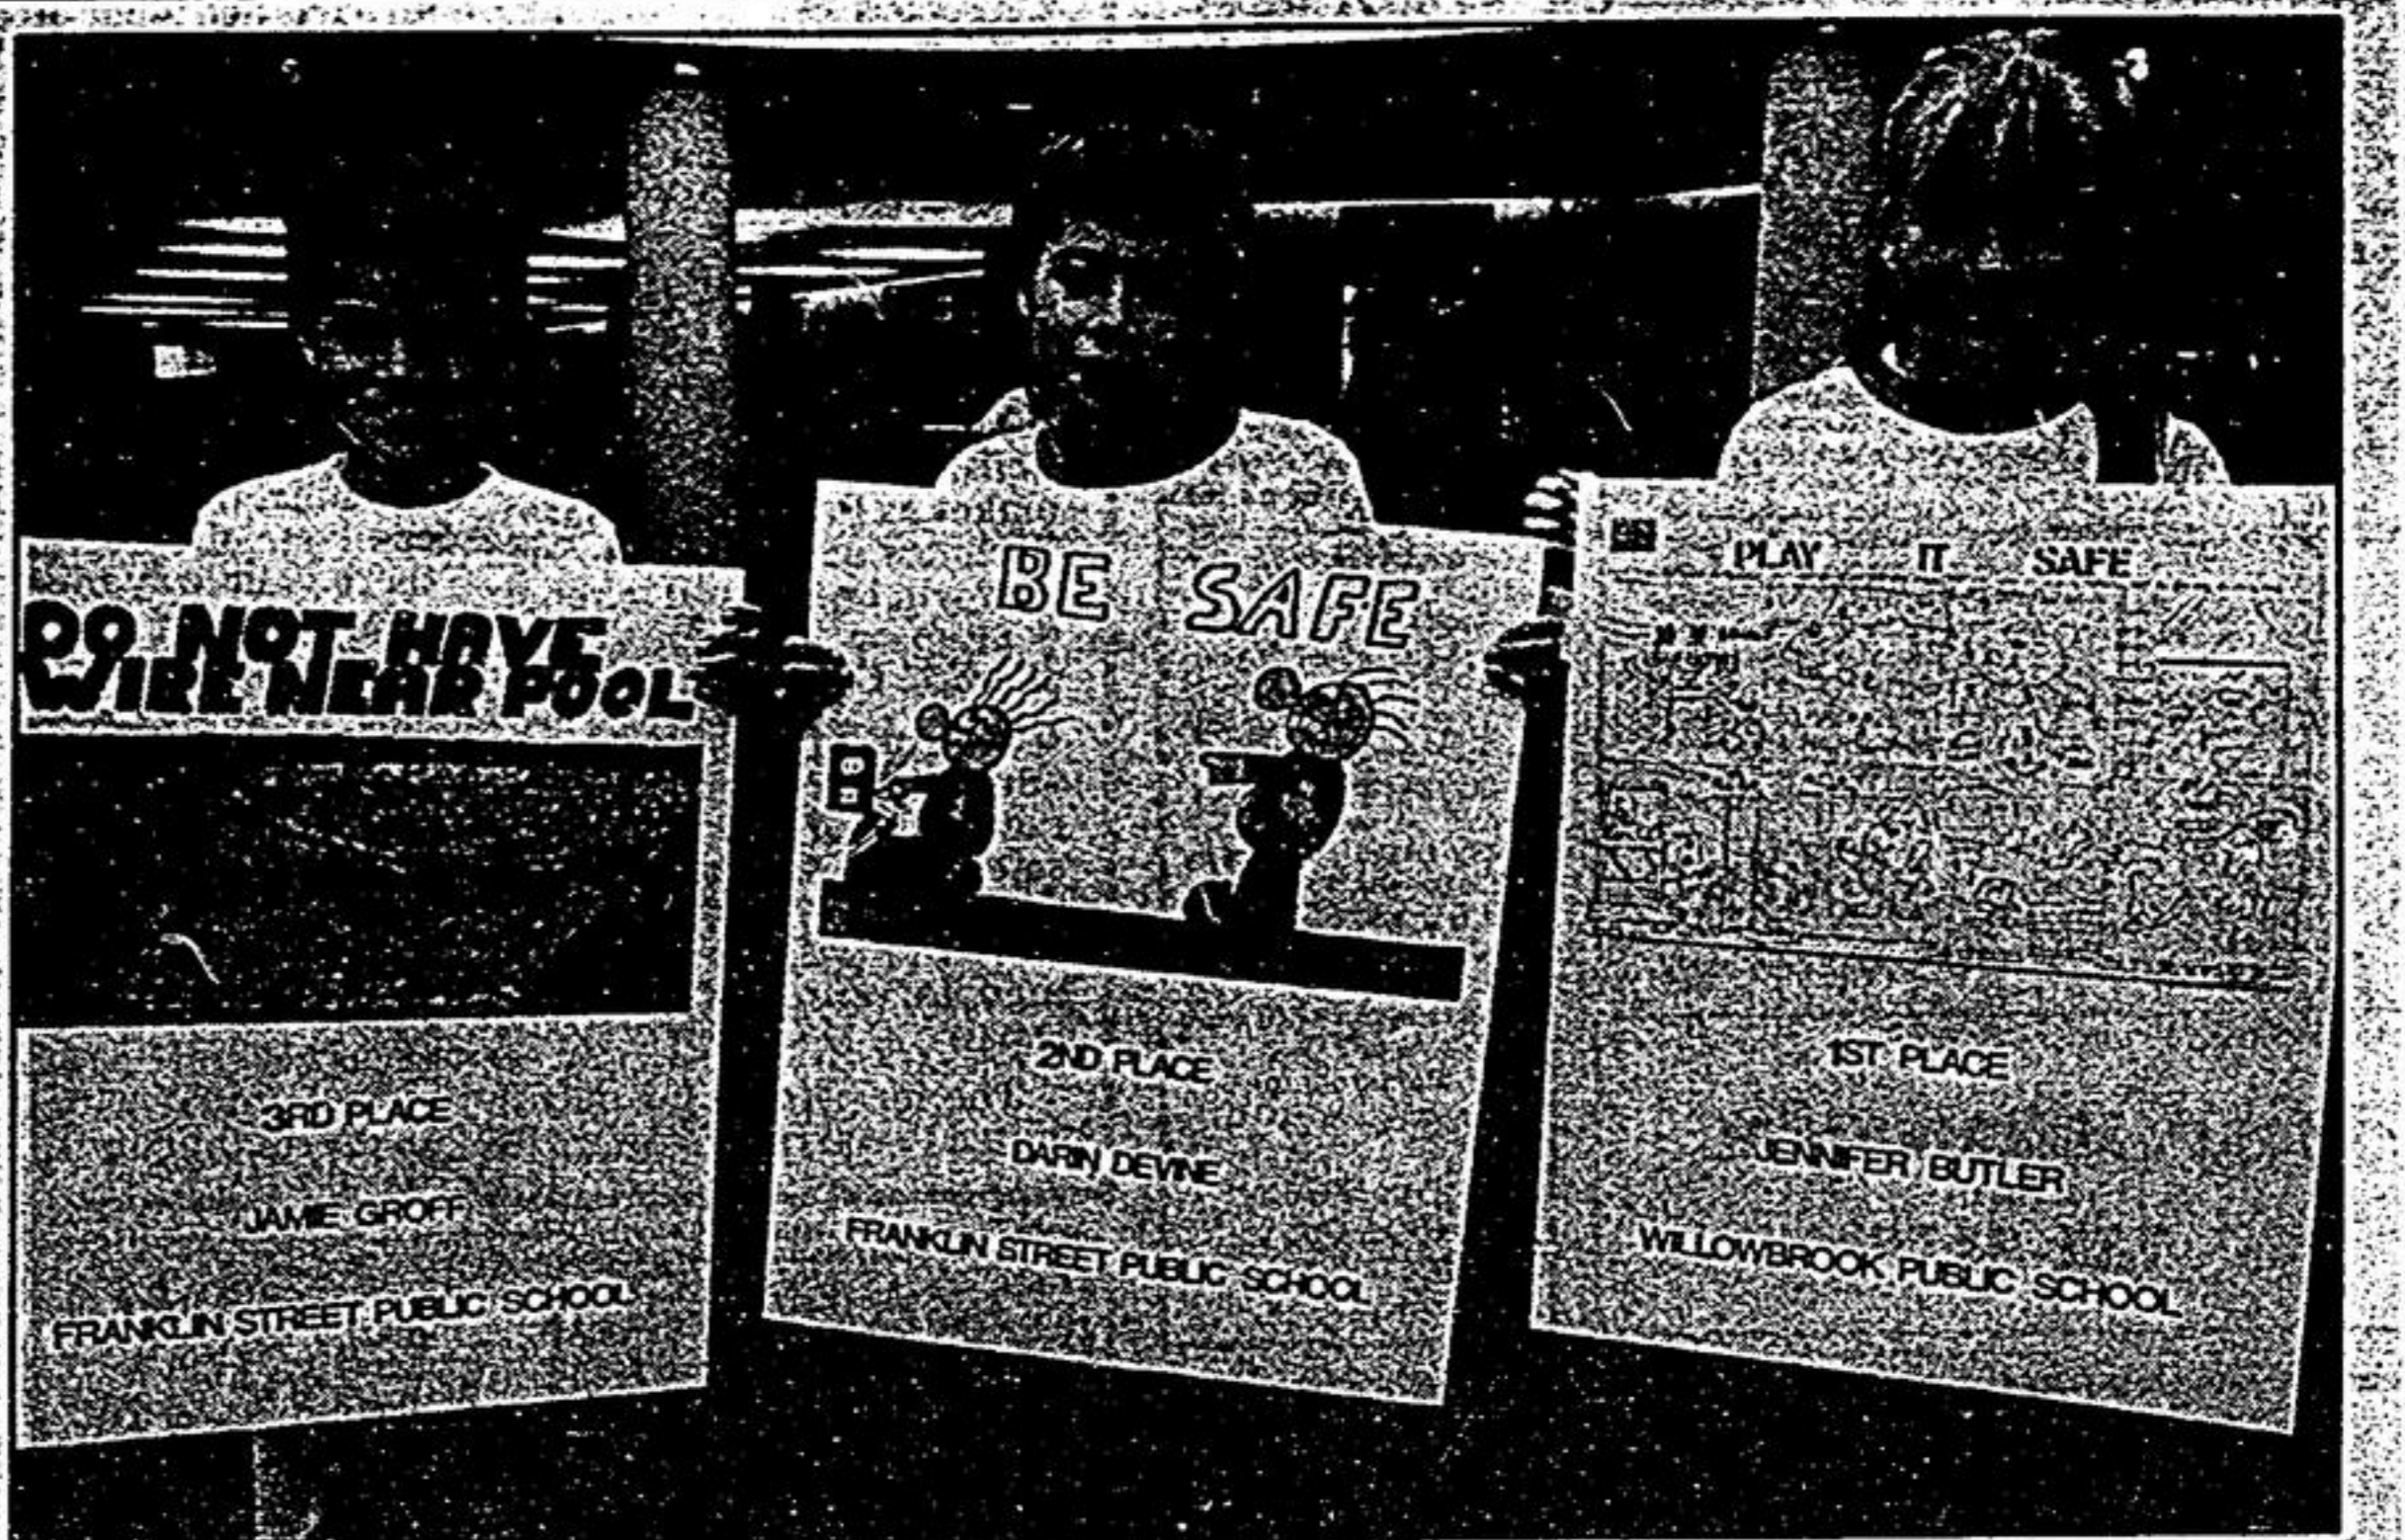 DO NOT HAVE
WIRE NEAR POOL
3RD PLACE
JAMIE GROFF
FRANKLIN STREET PUBLIC SCHOOL
BE SAFE
2ND PLACE
DARIN DEVINE
FRANKLIN STREET PUBLIC SCHOOL
PLAY IT SAFE
1ST PLACE
JENNIFER BUTLER
WILLOWBROOK PUBLIC SCHOOL